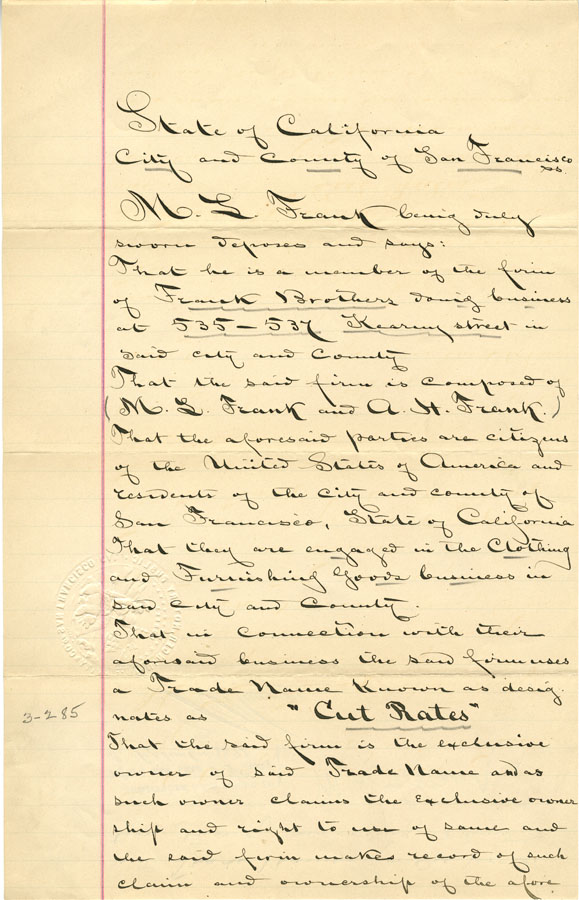 State of California
City and County of San Francisco ss
M. L. Frank being duly
sworn deposes and says:
That he is a member of the firm
of Frank Brothers doing business
at 535-537 Kearny street in
said city and County
That the said firm is composed of
(M. L. Frank and A. H. Frank.)
That the aforesaid parties are citizens
of the United States of America and
residents of the city and county of
San Francisco, State of California
That they are engaged in the Clothing
and Furnishing Goods business in
said City and County.
That in connection with their
aforesaid business the said firm uses
a Trade Name Known as desig
nates as "Cut Rates"
3-285
That the said firm is the exclusive
owner of said Trade Name and as
such owner claims the exclusive owner
ship and right to use of same and
the said firm makes record of such
claim and ownership of the afore